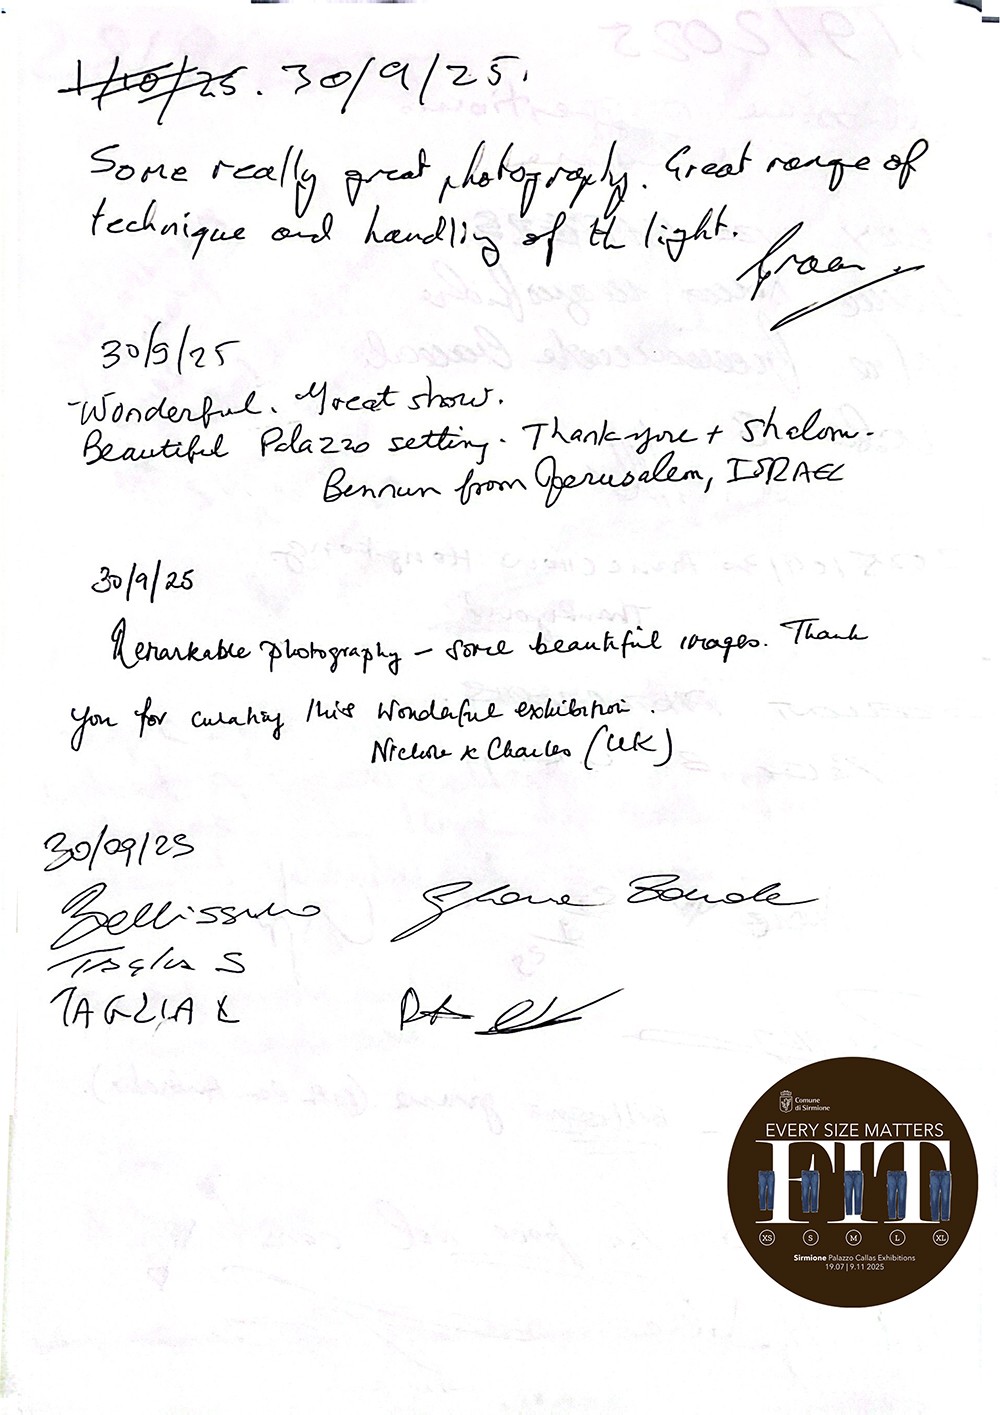 1/10/25. 30/9/25.
Some really great photography. Great range of
technique and handling of the light.
30/9/25
Wonderful. Great show.
Beautiful Palazzo setting. Thank you + Shalom.
Bennun from Jerusalem, ISRAEL
30/9/25
Remarkable photography – some beautiful images. Thank
you for curating this wonderful exhibition.
Nichola & Charles (UK)
30/09/25
Bellissimo
TAGLIA L
Comune
di Sirmione
EVERY SIZE MATTERS
FIT
XS S M L XL
Sirmione Palazzo Callas Exhibitions
19.07 | 9.11 2025